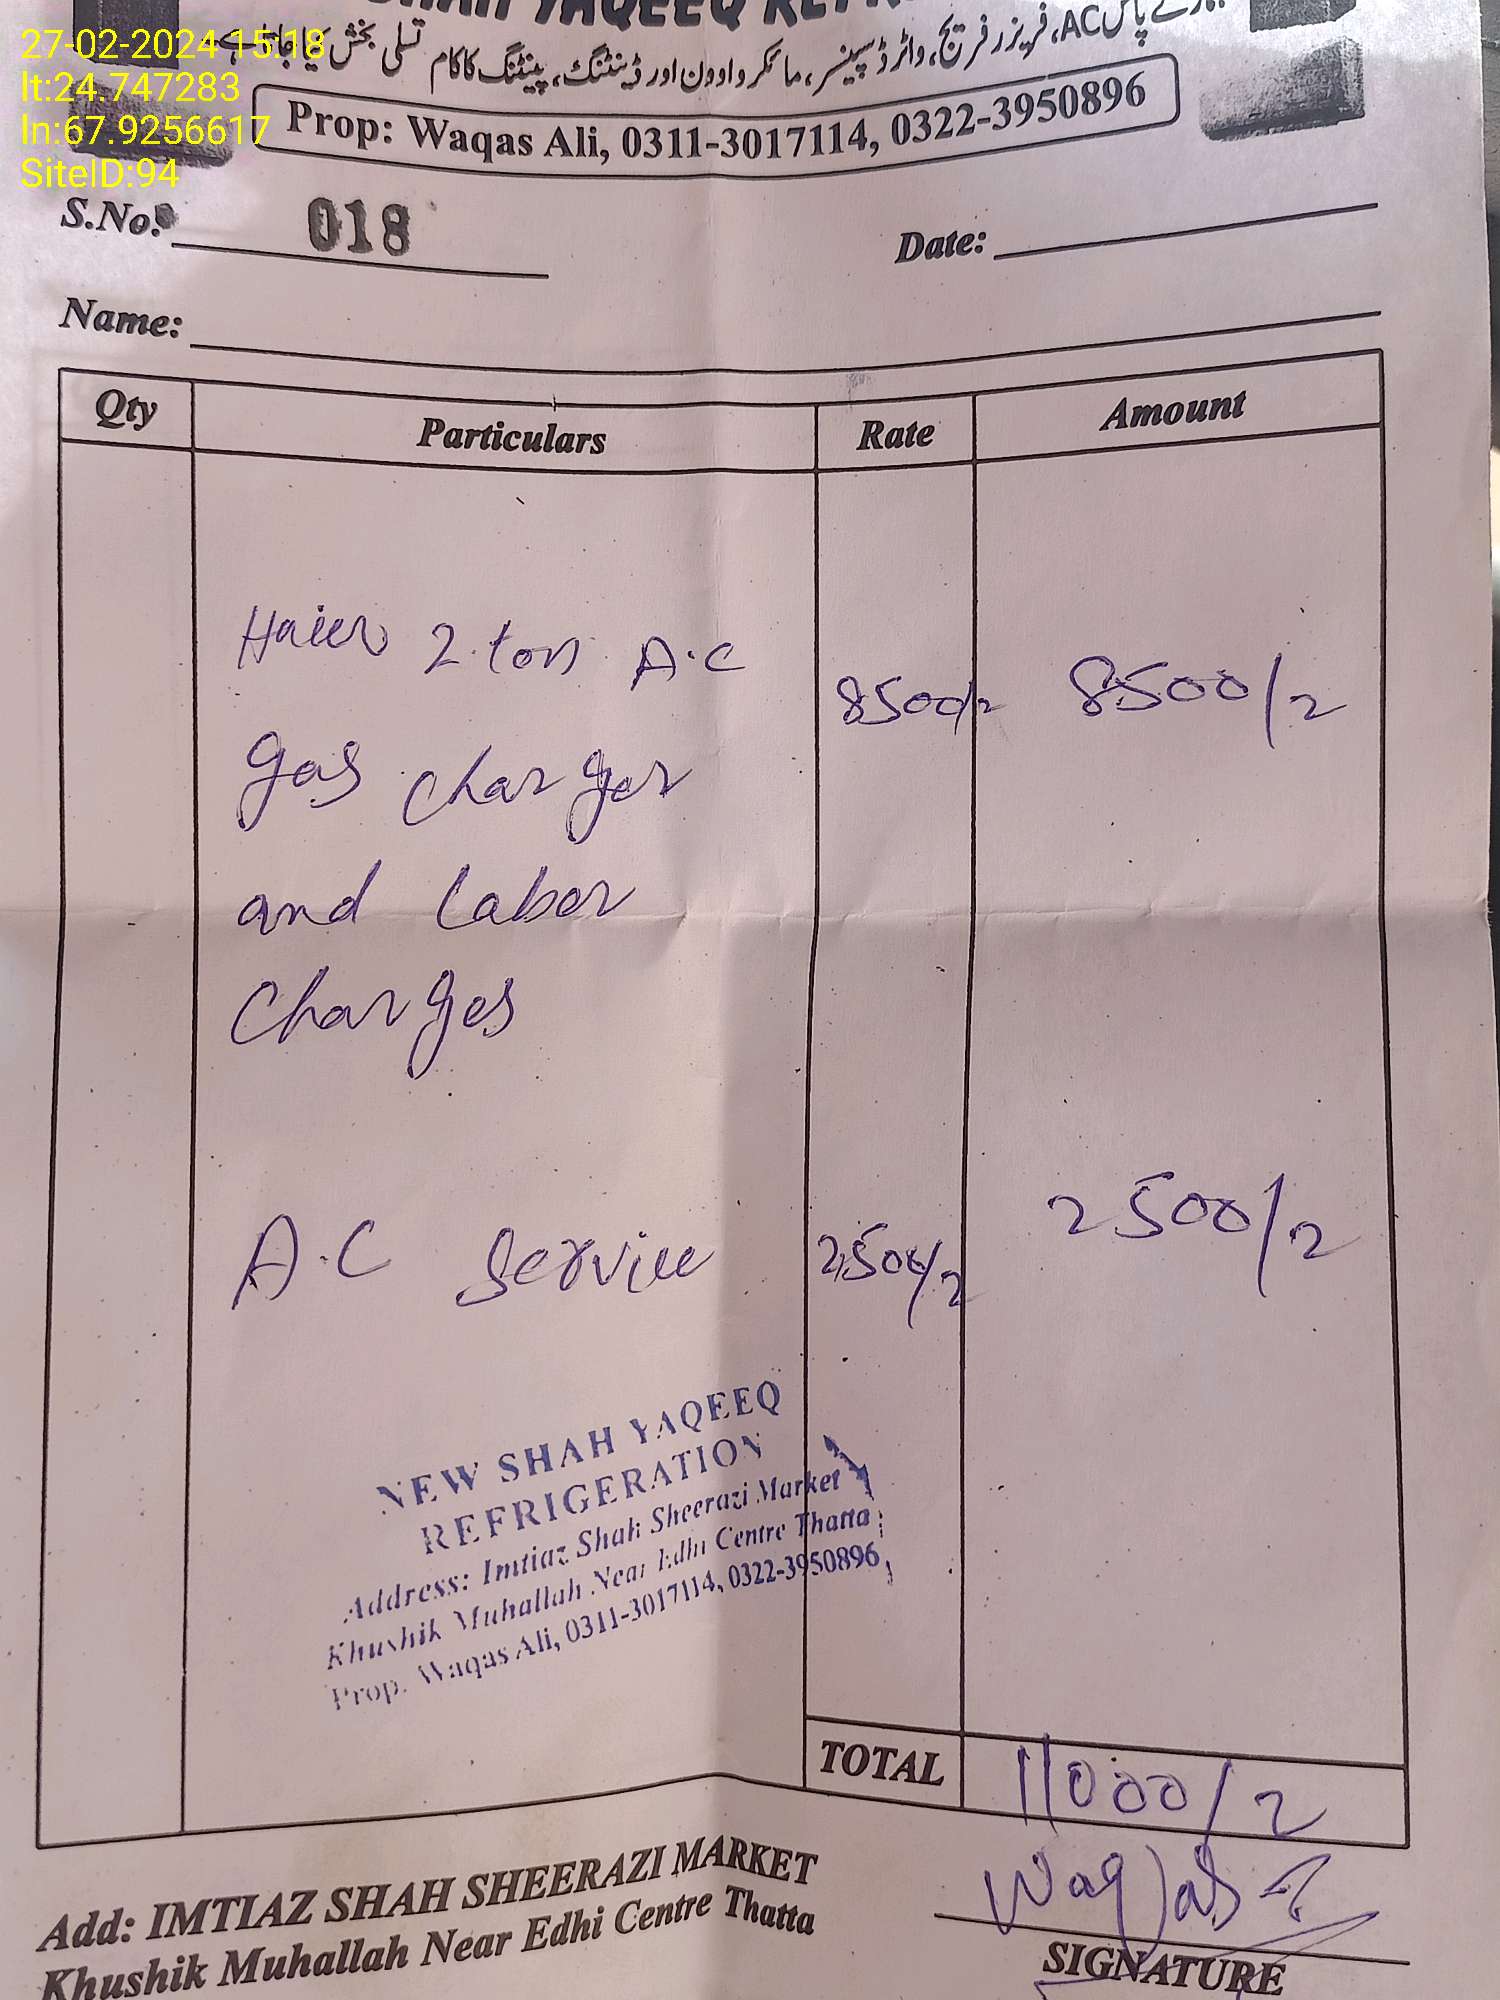 27-02-2024 15:18
lt:24.747283
ln:67.9256617
SiteID:94
SHAH YAQEEQ
AC، فریزر، فریج، واٹر ڈسپینسر، مائکرو اوون اور ڈینٹنگ، پینٹنگ کا کام تسلی بخش کیا جاتا ہے۔
Prop: Waqas Ali, 0311-3017114, 0322-3950896
S.No: 018 Date:
Name:
Qty Particulars Rate Amount
Haier 2 ton A.C 8500/2 8500/2
gas charger
and Labor
Charges
A.C Service 2500/2 2500/2
NEW SHAH YAQEEQ
REFRIGERATION
Address: Imtiaz Shah Sheerazi Market
Khushik Muhallah Near Edhi Centre Thatta
Prop. Waqas Ali, 0311-3017114, 0322-3950896
TOTAL 11000/2
Waqas
SIGNATURE
Add: IMTIAZ SHAH SHEERAZI MARKET
Khushik Muhallah Near Edhi Centre Thatta